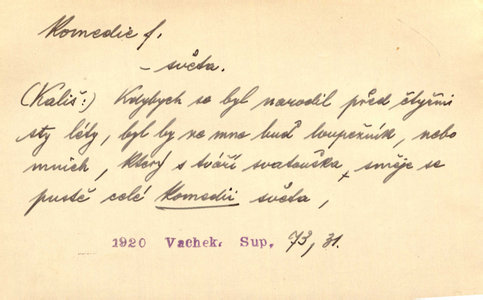 Komedie f.
– světa.
(Kališ:) Kdybych se byl narodil před čtyřmi
sty léty, byl by ze mne buď loupežník, nebo
mnich, který s tváří svatouška směje se
pustě celé Komedii světa,
1920 Vachek. Sup. 73, 31.